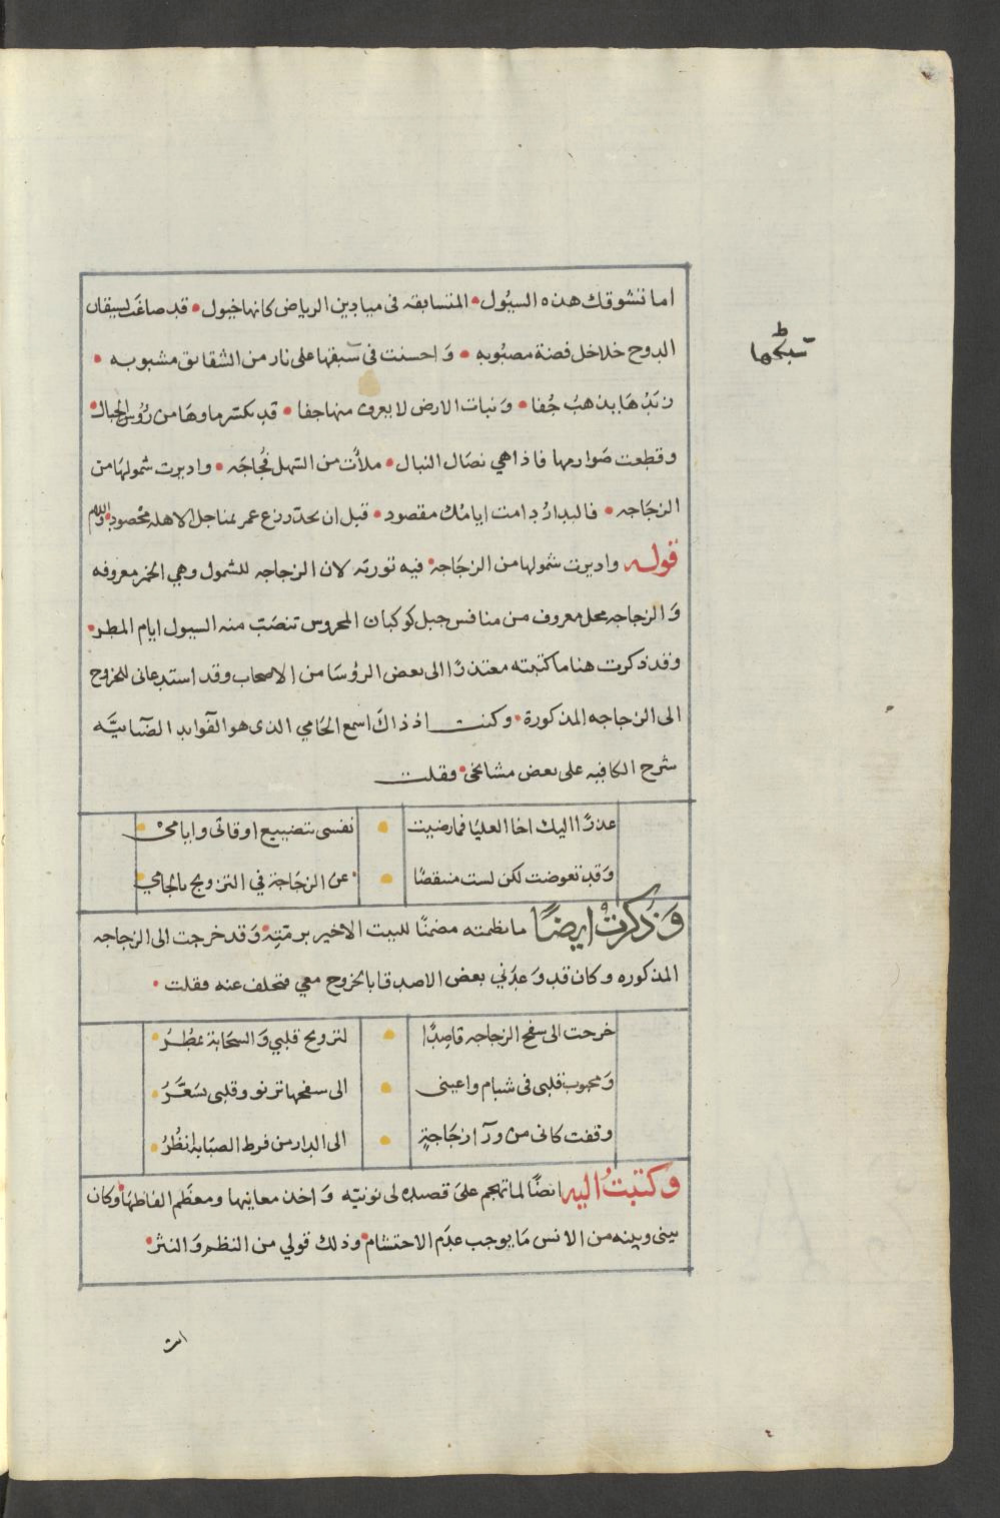 اما تشوقك هذه السيُول • المتسابقه فى ميادين الرياض كانها خيول • قد صاغت لسيقان
الدوح خلاخل فضة مصبُوبه • وَ احسنت فى سبقها على نار من الشقائق مشبوبه •
زبَدُهَا يذهبُ جُفا • وَ نبات الارض لا يعرف منها جفا • قد تكسّر ماوهَا من رُوُس الجبال •
وقطعت صَوارمها فاذا هي نصَال النبال • ملأت من السّهل فُجاجَه • واديرت شمولهَا من
الزجَاجه • فالبدارُ دامت ايامُك مقصود • قبل ان يحدّ رزع عمر بمناجل الاهلة محصود • والله
قوله واديرت شمولها من الزجَاجه • فيه توريَه لان الزجاجه للشمول وهي الخمر معروفه
وَ الزجاجه محل معروف من منافس جبل كوكبان المحروس تنصَبّ منه السيول ايام المطر •
وقد ذكرت هنا ما كتبته معتذرًا الى بعض الروُسَا من الاصحاب وقد استدعانى للخروج
الى الزجاجه المذكورة • وكنت اذ ذاكَ اسمع الجَامي الذى هو الفَوايد الضيائيَّه
شرح الكافيه على بعض مشائخى • فقلت
عذرًا اليك اخا العليَا فما رضيت • نفسى بتضييع اوقاتى وايامى •
وَقد تعوضت لكن لست منتقصًا • عن الزجَاجة في الترويح بالجامي •
وَذكرتُ ايضًا ما نظمته مضمنًا للبيت الاخير برمّتِه • وَقد خرجت الى الزجاجه
المذكوره وكان قد وَعدَني بعض الاصدقا بالخروج معي فتخلف عنه فقلت •
خرجت الى سفح الزجاجه قاصِدًا • لترويح قلبي وَ السحَابة تمطُرُ •
وَمحبوب قلبى فى شبام واعينى • الى سفحها ترنو وقلبى يسَعَّرُ •
وقفت كانى من ورآ زجَاجةٍ • الى الدار من فرط الصبَابة انظُرُ •
وكتبتُ اليه ايضًا لما تهجم علىَ قصيده لى نونيّه وَ اخذ معانيها ومعظم الفاظهَا • وكان
بينى وبينه من الانس مَا يوجب عدَم الاحتشام • وذلك قولي من النظم وَ النثر •
است